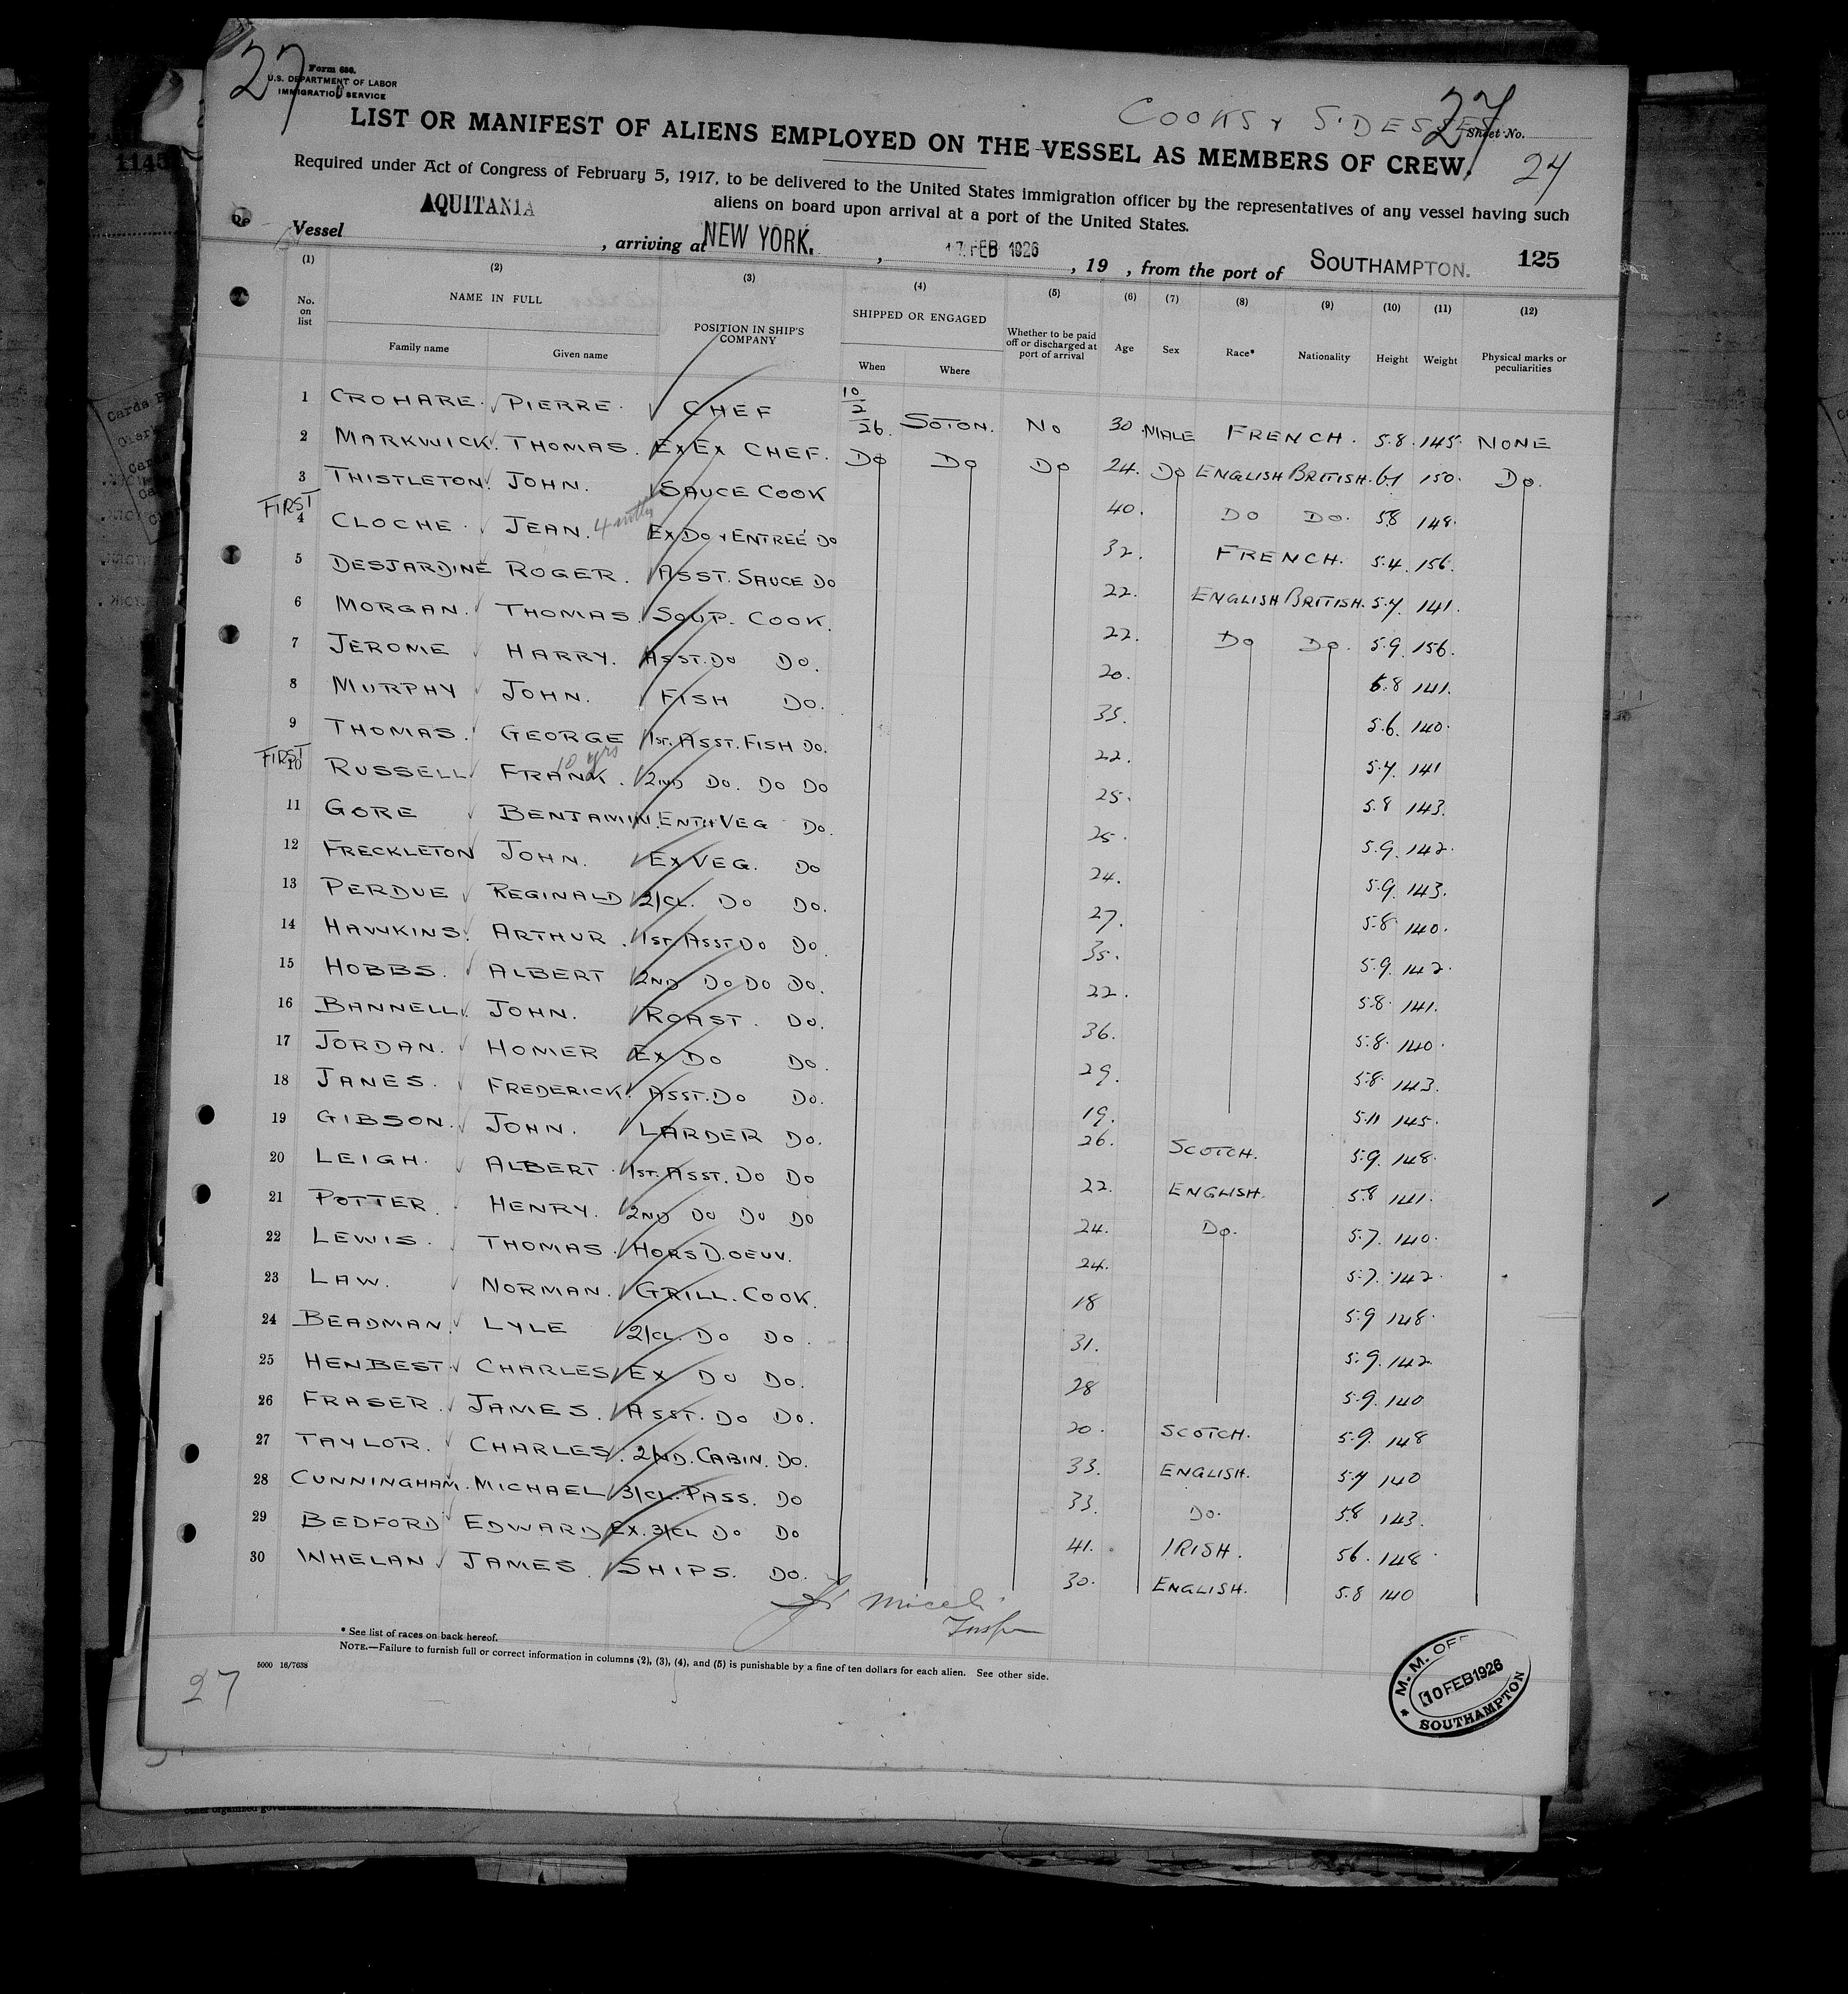 27
Form 680.
U.S. DEPARTMENT OF LABOR
IMMIGRATION SERVICE
COOKS & S.DESSES
27
Sheet No.
24
LIST OR MANIFEST OF ALIENS EMPLOYED ON THE VESSEL AS MEMBERS OF CREW.
Required under Act of Congress of February 5, 1917, to be delivered to the United States immigration officer by the representatives of any vessel having such
aliens on board upon arrival at a port of the United States.
Vessel AQUITANIA, arriving at NEW YORK., 17 FEB 1926, 19 , from the port of SOUTHAMPTON. 125
(1) (2) (3) (4) (5) (6) (7) (8) (9) (10) (11) (12)
No. on list NAME IN FULL POSITION IN SHIP'S COMPANY SHIPPED OR ENGAGED Whether to be paid off or discharged at port of arrival Age Sex Race* Nationality Height Weight Physical marks or peculiarities
Family name Given name When Where
1 CROHARE. PIERRE. CHEF 10/2/26. SOTON. NO 30 MALE FRENCH. 5.8. 145. NONE
2 MARKWICK. THOMAS. EX EX CHEF. DO DO DO 24. DO ENGLISH BRITISH. 6.1 150. DO.
3 THISTLETON. JOHN. SAUCE COOK 40. DO DO. 5.8 148.
FIRST
4 CLOCHE. JEAN. EX DO & ENTREÉ DO 32. FRENCH. 5.4. 156.
5 DESJARDINE ROGER. ASST. SAUCE DO 22. ENGLISH BRITISH. 5.7. 141.
6 MORGAN. THOMAS. SOUP. COOK. 22. DO DO. 5.9. 156.
7 JEROME HARRY. ASST. DO DO. 20. 5.8 141.
8 MURPHY JOHN. FISH DO. 35. 5.6. 140.
9 THOMAS. GEORGE 1ST. ASST. FISH DO. 22. 5.7. 141
FIRST 10 yrs
10 RUSSELL FRANK. 2ND DO. DO DO 25. 5.8 143.
11 GORE BENJAMIN. ENT & VEG DO. 25. 5.9. 142.
12 FRECKLETON JOHN. EX VEG. DO 24. 5.9. 143.
13 PERDUE REGINALD 2/CL. DO DO. 27. 5.8 140.
14 HAWKINS. ARTHUR. 1ST ASST DO DO. 35. 5.9. 142.
15 HOBBS. ALBERT 2ND DO DO DO. 22. 5.8. 141.
16 BANNELL. JOHN. ROAST. DO. 36. 5.8. 140.
17 JORDAN. HOMER EX DO DO. 29. 5.8 143.
18 JANES. FREDERICK. ASST. DO DO. 19. 5.11 145.
19 GIBSON. JOHN. LARDER DO. 26. SCOTCH. 5.9. 148.
20 LEIGH. ALBERT. 1ST. ASST. DO DO 22. ENGLISH. 5.8 141.
21 POTTER. HENRY. 2ND DO DO DO 24. DO. 5.7. 140.
22 LEWIS. THOMAS. HORS D. OEUV. 24. 5.7. 142.
23 LAW. NORMAN. GRILL. COOK. 18 5.9 148.
24 BEADMAN. LYLE 2/CL. DO DO. 31. 5.9. 142.
25 HENBEST. CHARLES EX DO DO. 28 5.9. 140
26 FRASER. JAMES. ASST. DO DO. 20. SCOTCH. 5.9. 148
27 TAYLOR. CHARLES. 2ND. CABIN. DO. 33. ENGLISH. 5.7 140
28 CUNNINGHAM. MICHAEL 3/CL. PASS. DO 33. DO. 5.8 143.
29 BEDFORD EDWARD EX. 3/CL DO DO 41. IRISH. 5.6. 148
30 WHELAN JAMES. SHIPS. DO. 30. ENGLISH. 5.8 140
* See list of races on back hereof.
NOTE.—Failure to furnish full or correct information in columns (2), (3), (4), and (5) is punishable by a fine of ten dollars for each alien. See other side.
5000 16/7638
27
M. M. OFF
10 FEB 1926
* SOUTHAMPTON